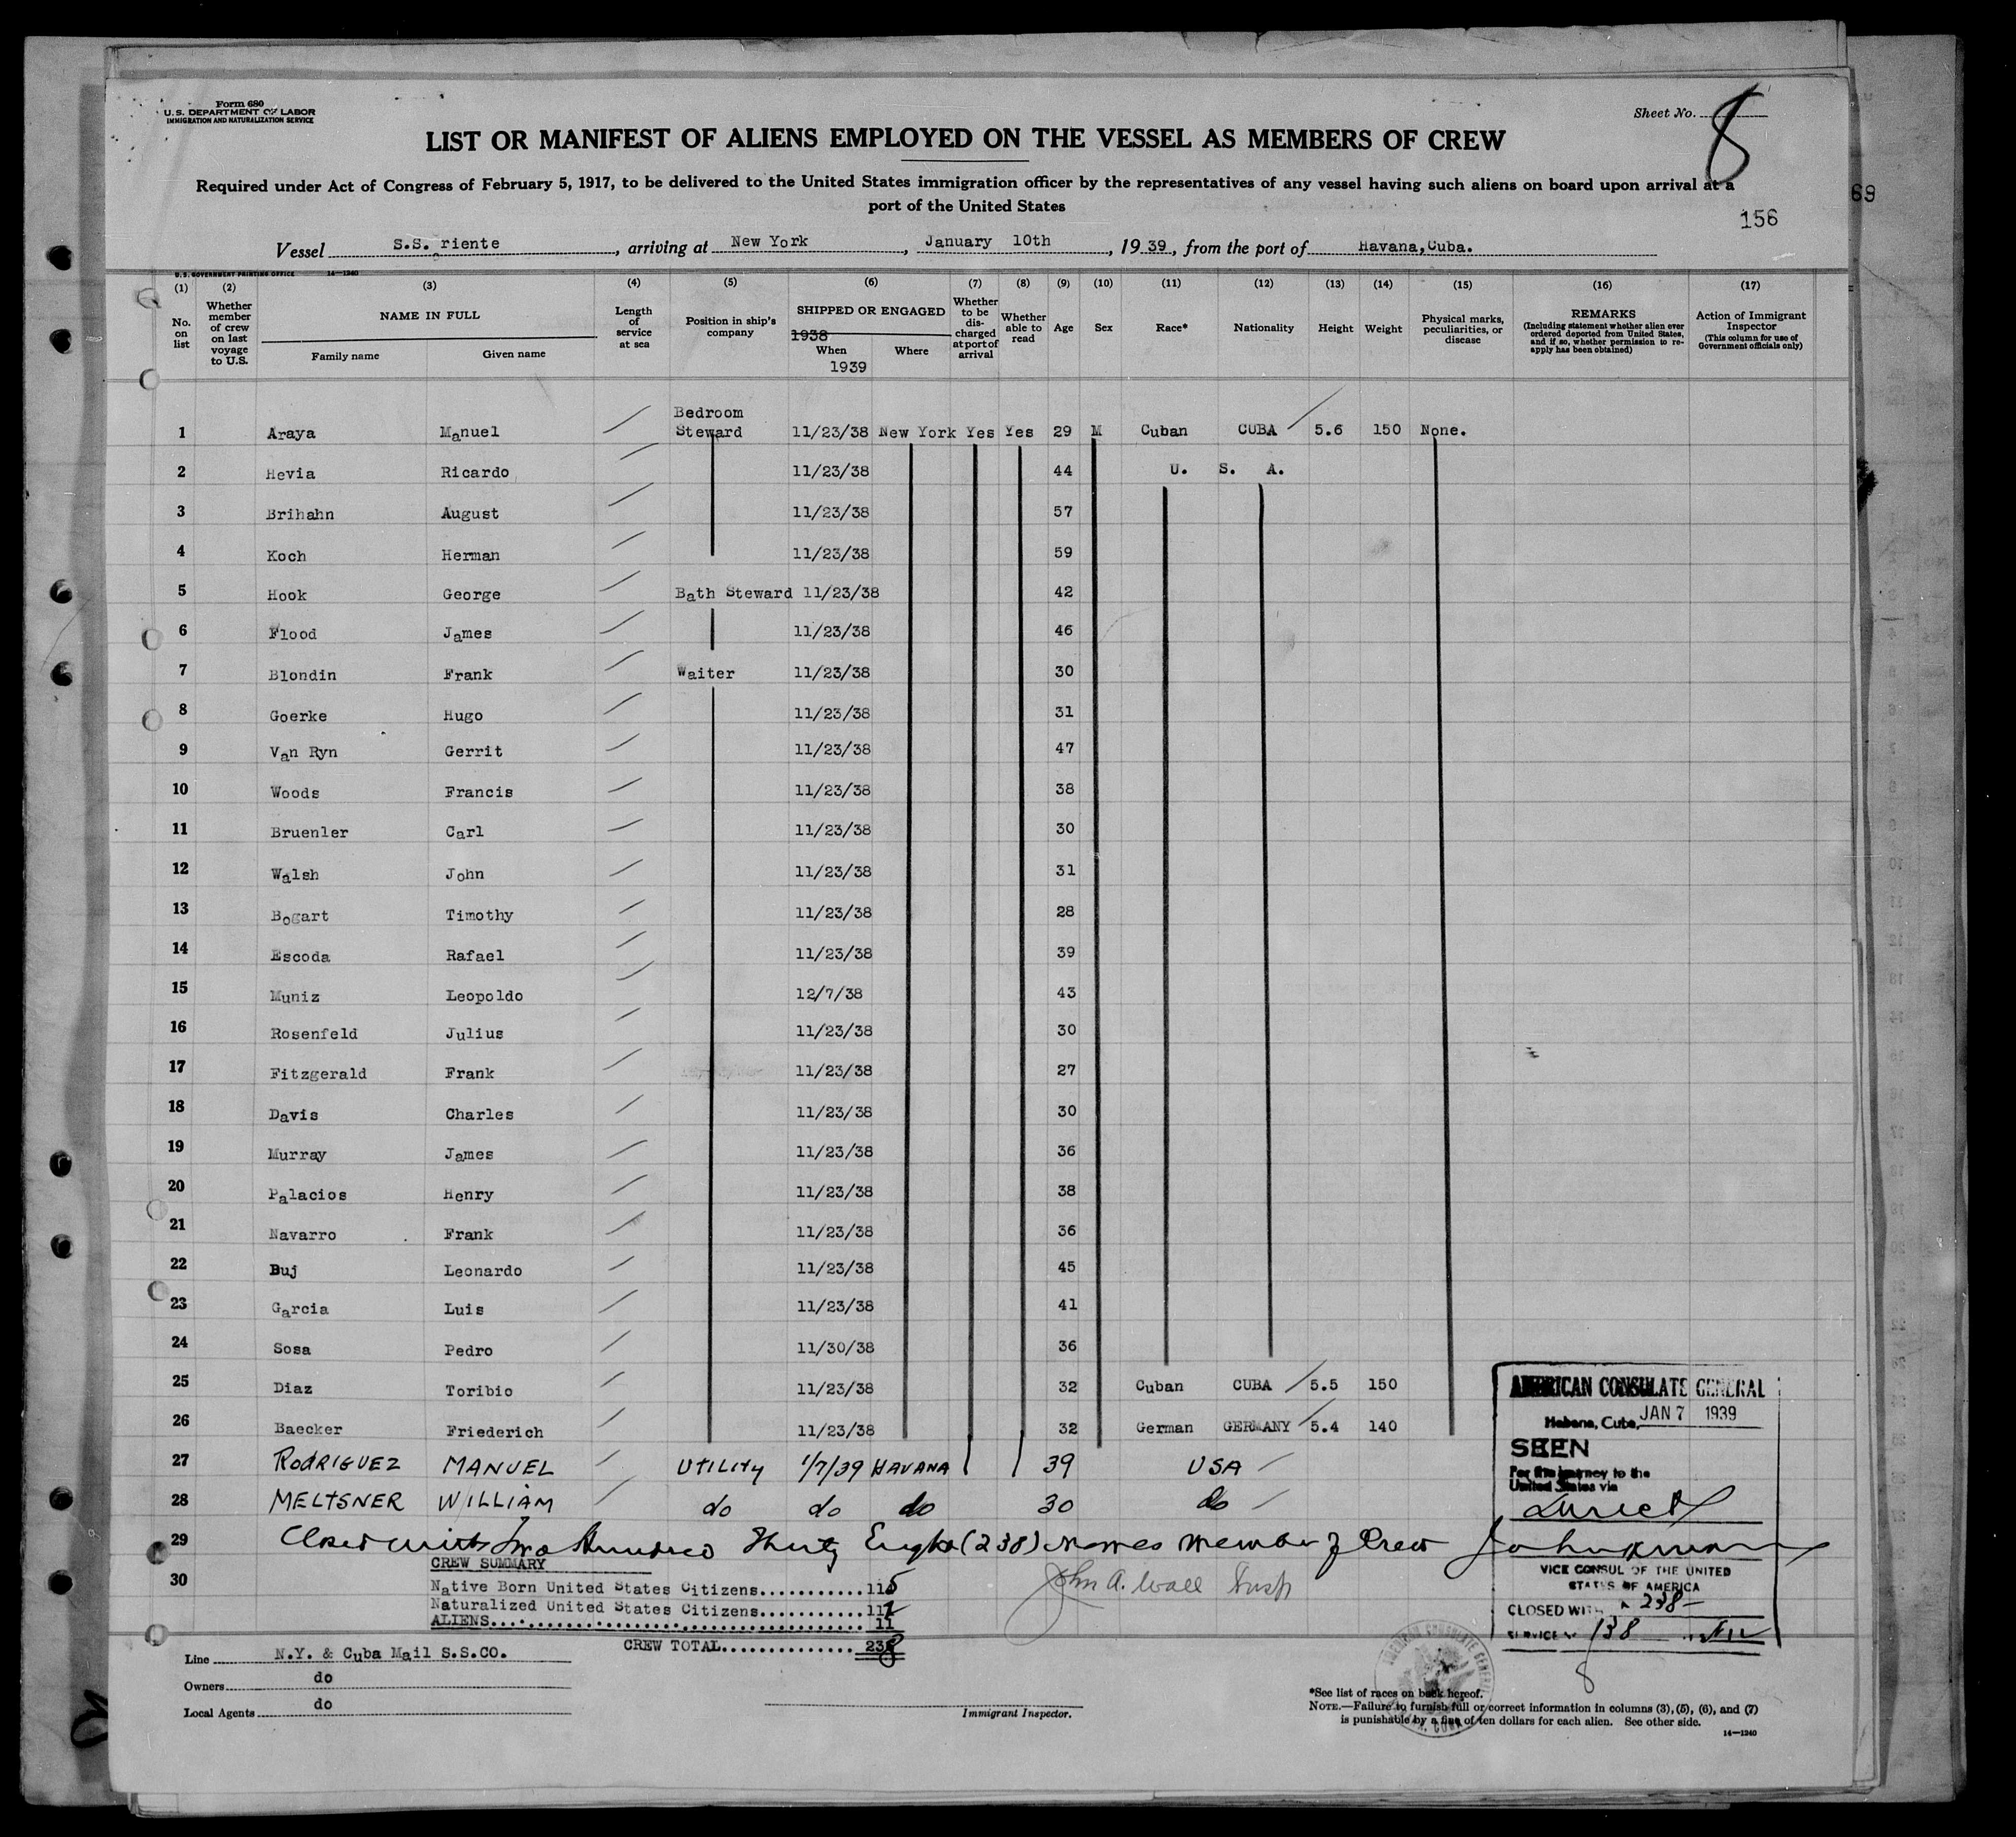 Form 680
U. S. DEPARTMENT OF LABOR
IMMIGRATION AND NATURALIZATION SERVICE
Sheet No. 8
LIST OR MANIFEST OF ALIENS EMPLOYED ON THE VESSEL AS MEMBERS OF CREW
Required under Act of Congress of February 5, 1917, to be delivered to the United States immigration officer by the representatives of any vessel having such aliens on board upon arrival at a
port of the United States
69
156
Vessel S.S. riente, arriving at New York, January 10th, 1939, from the port of Havana,Cuba.
U. S. GOVERNMENT PRINTING OFFICE 14—1240
(1) (2) (3) (4) (5) (6) (7) (8) (9) (10) (11) (12) (13) (14) (15) (16) (17)
No. on list
Whether member of crew on last voyage to U.S.
NAME IN FULL
Family name Given name
Length of service at sea
Position in ship's company
SHIPPED OR ENGAGED
1938
When Where
1939
Whether to be discharged at port of arrival
Whether able to read
Age
Sex
Race*
Nationality
Height
Weight
Physical marks, peculiarities, or disease
REMARKS
(Including statement whether alien ever ordered deported from United States, and if so, whether permission to reapply has been obtained)
Action of Immigrant Inspector
(This column for use of Government officials only)
1 Araya Manuel Bedroom Steward 11/23/38 New York Yes Yes 29 M Cuban CUBA 5.6 150 None.
2 Hevia Ricardo 11/23/38 44 U. S. A.
3 Brihahn August 11/23/38 57
4 Koch Herman 11/23/38 59
5 Hook George Bath Steward 11/23/38 42
6 Flood James 11/23/38 46
7 Blondin Frank Waiter 11/23/38 30
8 Goerke Hugo 11/23/38 31
9 Van Ryn Gerrit 11/23/38 47
10 Woods Francis 11/23/38 38
11 Bruenler Carl 11/23/38 30
12 Walsh John 11/23/38 31
13 Bogart Timothy 11/23/38 28
14 Escoda Rafael 11/23/38 39
15 Muniz Leopoldo 12/7/38 43
16 Rosenfeld Julius 11/23/38 30
17 Fitzgerald Frank 11/23/38 27
18 Davis Charles 11/23/38 30
19 Murray James 11/23/38 36
20 Palacios Henry 11/23/38 38
21 Navarro Frank 11/23/38 36
22 Buj Leonardo 11/23/38 45
23 Garcia Luis 11/23/38 41
24 Sosa Pedro 11/30/38 36
25 Diaz Toribio 11/23/38 32 Cuban CUBA 5.5 150
26 Baecker Friederich 11/23/38 32 German GERMANY 5.4 140
27 RODRIGUEZ MANUEL UTILITY 1/7/39 HAVANA 39 USA
28 MELTSNER WILLIAM do do do 30 do
29 Closed with Two Hundred Thirty Eight (238) names member of Crew
30
CREW SUMMARY
Native Born United States Citizens...........115
Naturalized United States Citizens...........112
ALIENS...................................11
CREW TOTAL...............238
John A. Wall
AMERICAN CONSULATE GENERAL
Habana, Cuba, JAN 7 1939
SEEN
For the journey to the
United States via
direct
VICE CONSUL OF THE UNITED
STATES OF AMERICA
CLOSED WITH 238
SERVICE No. 138
Line N.Y. & Cuba Mail S.S.CO.
Owners do
Local Agents do
Immigrant Inspector.
*See list of races on back hereof.
NOTE.—Failure to furnish full or correct information in columns (3), (5), (6), and (7)
is punishable by a fine of ten dollars for each alien. See other side.
14—1240